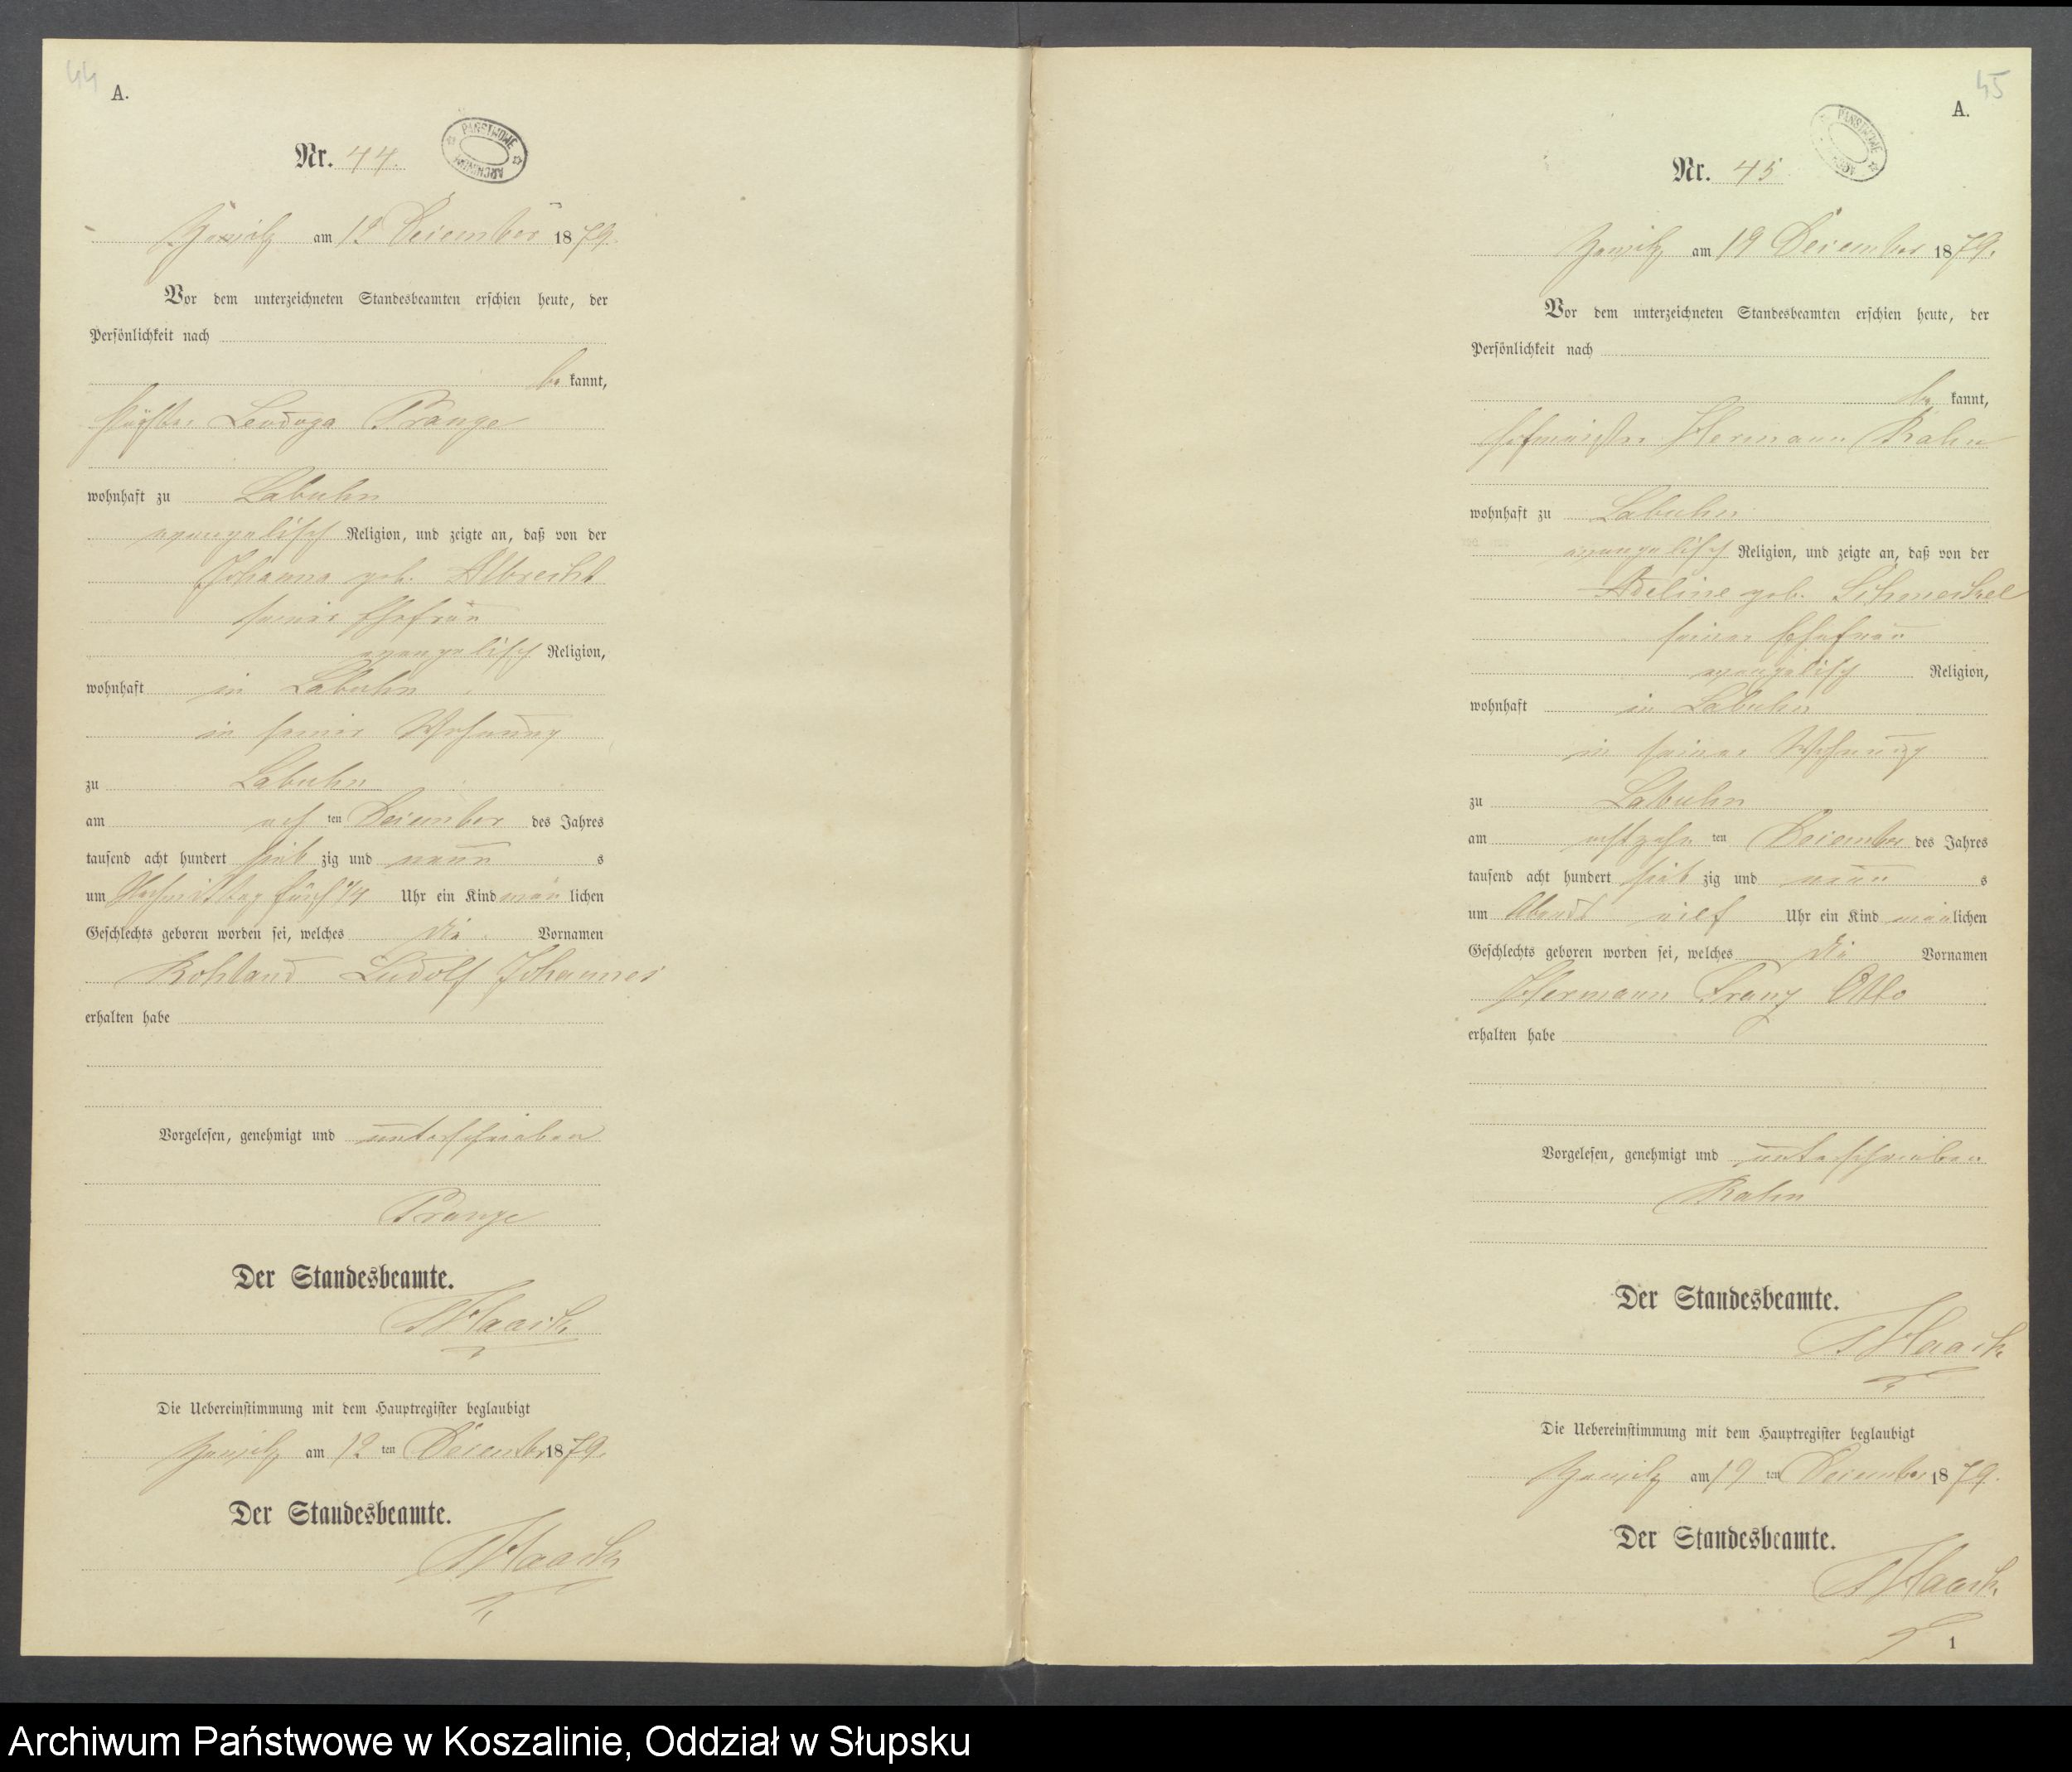 44
A.
Nr. 44.
PAŃSTWOWE ARCHIWUM
am 12 Dezember 1879.
Vor dem unterzeichneten Standesbeamten erschien heute, der
Persönlichkeit nach
be kannt,
Prange
wohnhaft zu Labuhn
evangelisch Religion, und zeigte an, daß von der
Johanna geb. Albrecht
seiner Ehefrau
evangelisch Religion,
wohnhaft in Labuhn
in seiner Wohnung
zu Labuhn
am ten Dezember des Jahres
tausend acht hundert sieb zig und neun s
um Nachmittag fünf Uhr ein Kind män lichen
Geschlechts geboren worden sei, welches die Vornamen
Ludolf Johannes
erhalten habe
Vorgelesen, genehmigt und unterschrieben
Prange
Der Standesbeamte.
Haack
Die Uebereinstimmung mit dem Hauptregister beglaubigt
am 12 ten Dezember 1879.
Der Standesbeamte.
Haack
45
A.
Nr. 45
PAŃSTWOWE ARCHIWUM
am 19 Dezember 1879.
Vor dem unterzeichneten Standesbeamten erschien heute, der
Persönlichkeit nach
be kannt,
Hofmeister Hermann
wohnhaft zu Labuhn
evangelisch Religion, und zeigte an, daß von der
Adeline geb. Schmeckel
seiner Ehefrau
evangelisch Religion,
wohnhaft in Labuhn
in seiner Wohnung
zu Labuhn
am achtzehn ten Dezember des Jahres
tausend acht hundert sieb zig und neun s
um Abends elf Uhr ein Kind män lichen
Geschlechts geboren worden sei, welches die Vornamen
Hermann Franz Otto
erhalten habe
Vorgelesen, genehmigt und unterschrieben
Der Standesbeamte.
Haack
Die Uebereinstimmung mit dem Hauptregister beglaubigt
am 19 ten Dezember 1879.
Der Standesbeamte.
Haack
1
Archiwum Państwowe w Koszalinie, Oddział w Słupsku